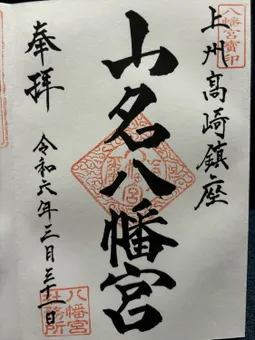 八幡宮寳印
上州高崎鎮座
山名八幡宮
奉拝
令和六年三月三十一日
八幡宮
社務所